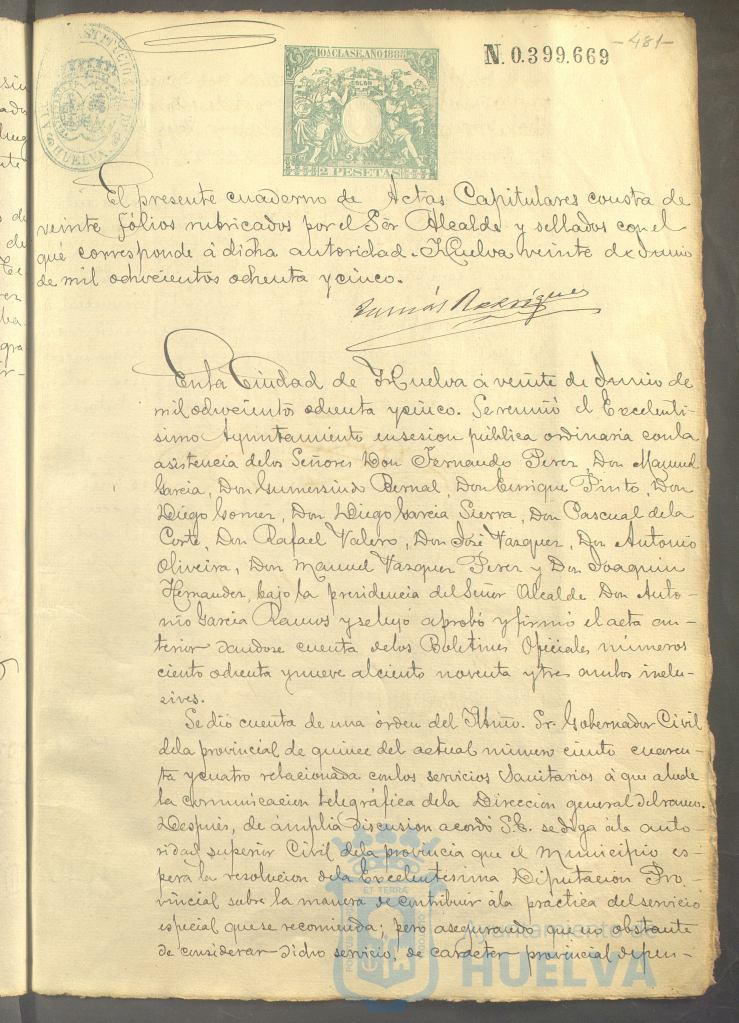 -481-
10ª CLASE, AÑO 1885
N. 0.399.669
HUELVA
2 PESETAS
El presente cuaderno de Actas Capitulares consta de
veinte fólios rubricados por el Sör Alcalde y sellados con el
qué corresponde á dicha autoridad. Huelva veinte de Junio
de mil ochocientos ochenta y cinco.
Tomás Rodríguez
En la Ciudad de Huelva á veinte de Junio de
mil ochocientos ochenta y cinco. Se reunió el Excelentí-
simo Ayuntamiento en sesion pública ordinaria con la
asistencia de los Señores Don Fernando Perez, Don Manuel
Garcia, Don Gumersindo Bernal, Don Enrique Pinto, Don
Diego Gomez, Don Diego Garcia Sierra, Don Pascual de la
Corte, Don Rafael Valero, Don José Vazquez, Don Antonio
Oliveira, Don Manuel Vazquez Perez y Don Joaquin
Hernandez, bajo la presidencia del Señor Alcalde Don Anto-
nio Garcia Ramos y se leyó aprobó y firmó el acta an-
terior dandose cuenta de los Boletines Oficiales números
ciento ochenta y nueve al ciento noventa y tres ambos inclu-
sives.
Se dió cuenta de una órden del Iltmo. Sr. Gobernador Civil
de la provincial de quince del actual número ciento cuaren-
ta y cuatro relacionada con los servicios Sanitarios á que alude
la comunicacion telegráfica de la Direccion general del ramo.
Después, de ámplia discusion acordó S.E. se diga á la auto-
ridad superior Civil de la provincia que el Municipio es-
pera la resolucion de la Excelentisima Diputacion Pro-
vincial sobre la manera de contribuir á la práctica del servicio
especial que se recomienda; pero asegurando que no obstante
de considerar dicho servicio, de carácter provincial dispen-
ET TERRA
Ayuntamiento de
HUELVA